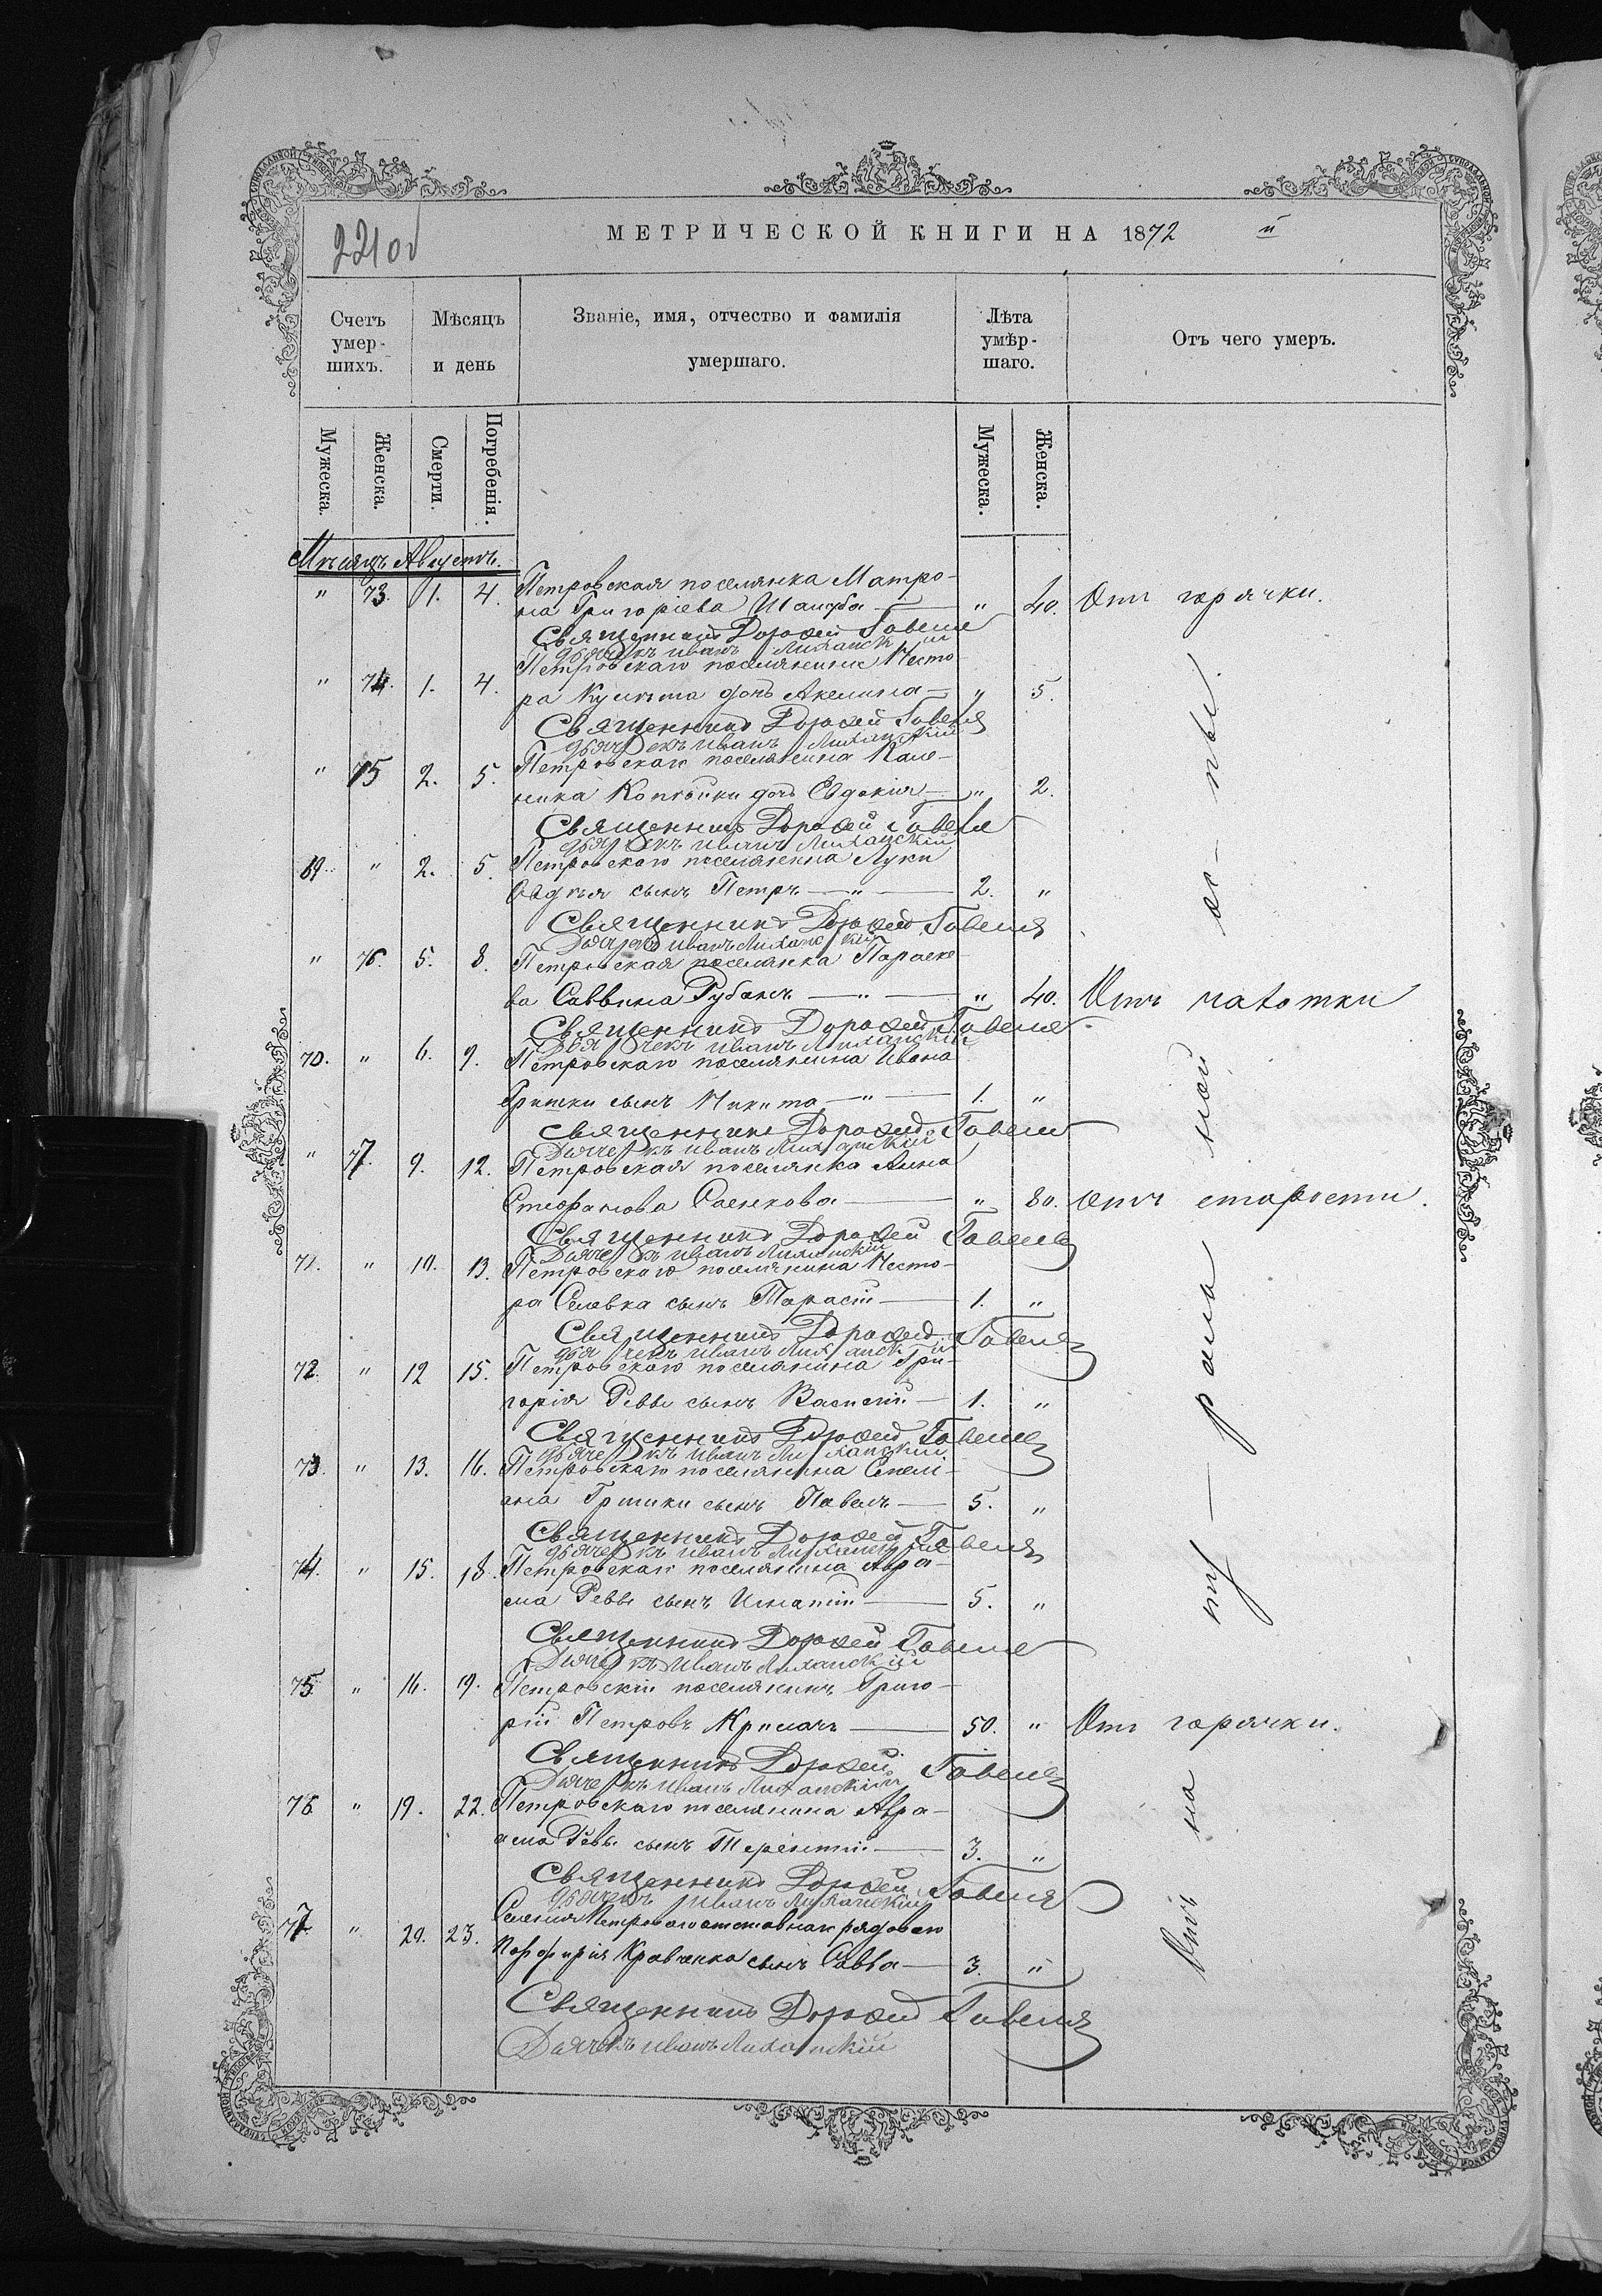 221 об
МЕТРИЧЕСКОЙ КНИГИ НА 1872 й
Счетъ умер-шихъ.
Мѣсяцъ и день
Званіе, имя, отчество и фамилія умершаго.
Лѣта умѣр-шаго.
Отъ чего умеръ.
Мужеска. Женска. Смерти. Погребенія. Мужеска. Женска.
Мѣсяцъ Августъ.
" 73. 1. 4. Петровская поселянка Матро-
на Григоріева — " 40. Отъ горячки.
Священникъ Дорофей Говеля
Дьячекъ Иванъ Лиханскій
" 74. 1. 4. Петровскаго поселянина Несто-
ра дочь Акелина — " 5.
Священникъ Дорофей Говеля
Дьячекъ Иванъ Лиханскій
" 75 2. 5. Петровскаго поселянина Кале-
ника Копѣйки дочь Евдокія — " 2.
Священникъ Дорофей Говеля
Дьячекъ Иванъ Лиханскій
69. " 2. 5. Петровскаго поселянина Луки
сынъ Петръ — " — 2. "
Священникъ Дорофей Говеля
Дьячекъ Иванъ Лиханскій
" 76. 5. 8. Петровская поселянка Параске-
ва Саввина Рубанъ — " — " 40. Отъ чахотки
Священникъ Дорофей Говеля
Дьячекъ Иванъ Лиханскій
70. " 6. 9. Петровскаго поселянина Ивана
Гришки сынъ Никита — " — 1. "
Священникъ Дорофей Говеля
Дьячекъ Иванъ Лиханскій
" 77. 9. 12. Петровская поселянка Анна
Стефанова Саенкова — " 80. Отъ старости.
Священникъ Дорофей Говеля
Дьячекъ Иванъ Лиханскій
71. " 10. 13. Петровскаго поселянина Несто-
ра сынъ Тарасій — 1. "
Священникъ Дорофей Говеля
Дьячекъ Иванъ Лиханскій
72. " 12 15. Петровскаго поселянина Гри-
горія Реввы сынъ Василій — 1. "
Священникъ Дорофей Говеля
Дьячекъ Иванъ Лиханскій
73. " 13. 16. Петровскаго поселянина Емелі-
ана Гришки сынъ Павелъ — 5. "
Священникъ Дорофей Говеля
Дьячекъ Иванъ Лиханскій
74. " 15. 18. Петровскаго поселянина Авра-
ма Реввы сынъ Игнатій — 5. "
Священникъ Дорофей Говеля
Дьячекъ Иванъ Лиханскій
75 " 16. 19. Петровскій поселянинъ Григо-
рій Петровъ — 50. " Отъ горячки.
Священникъ Дорофей Говеля
Дьячекъ Иванъ Лиханскій
76 " 19. 22. Петровскаго поселянина Авра-
ама Реввы сынъ Терентій — 3. "
Священникъ Дорофей Говеля
Дьячекъ Иванъ Лиханскій
77. " 20. 23. Селенія Петроваго отставнаго рядоваго
Порфирія Кравченка сынъ Савва — 3. "
Священникъ Дорофей Говеля
Дьячекъ Иванъ Лиханскій
Отъ на ту — ральной ос — пы.